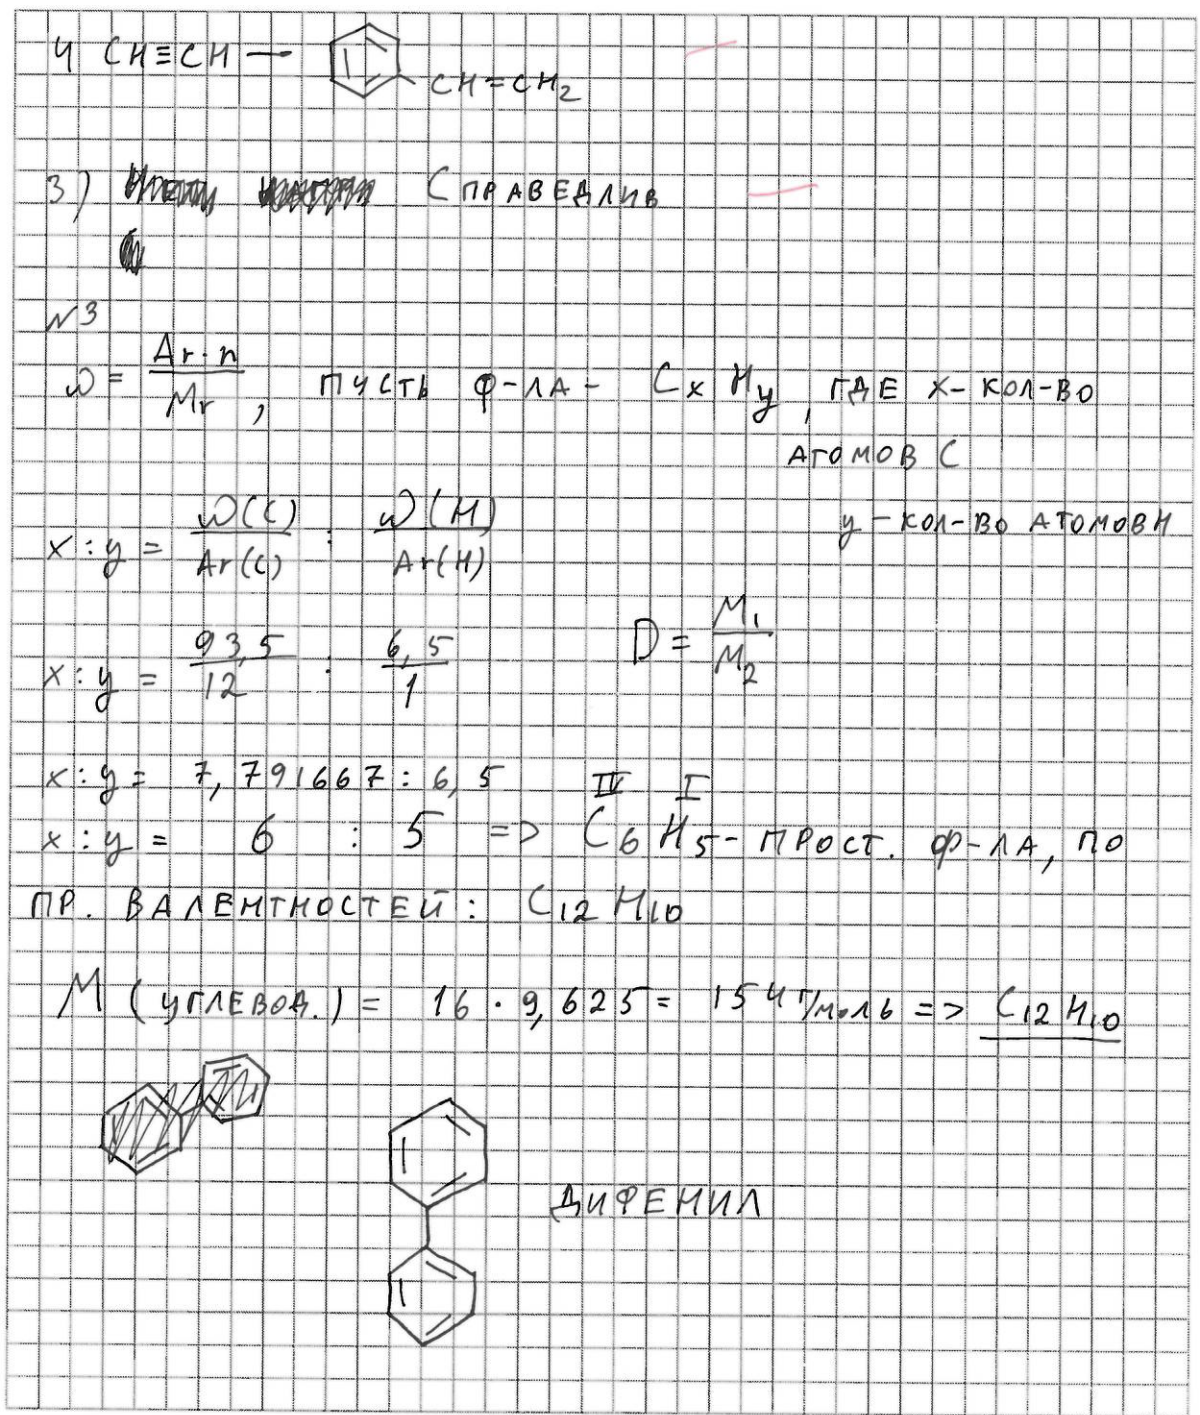 4 CH≡CH —
CH=CH₂
3) СПРАВЕДЛИВ
№3
ω = Ar·n / Mr , ПУСТЬ Ф-ЛА - CxHy , ГДЕ X - КОЛ-ВО
АТОМОВ C
y - КОЛ-ВО АТОМОВ H
x : y = ω(C) / Ar(C) : ω(H) / Ar(H)
x : y = 93,5 / 12 : 6,5 / 1
D = M₁ / M₂
x : y = 7,791667 : 6,5
IV I
x : y = 6 : 5 => C₆H₅ - ПРОСТ. Ф-ЛА, ПО
ПР. ВАЛЕНТНОСТЕЙ: C₁₂H₁₀
M (УГЛЕВОД.) = 16 · 9,625 = 154 г/моль => C₁₂H₁₀
ДИФЕНИЛ